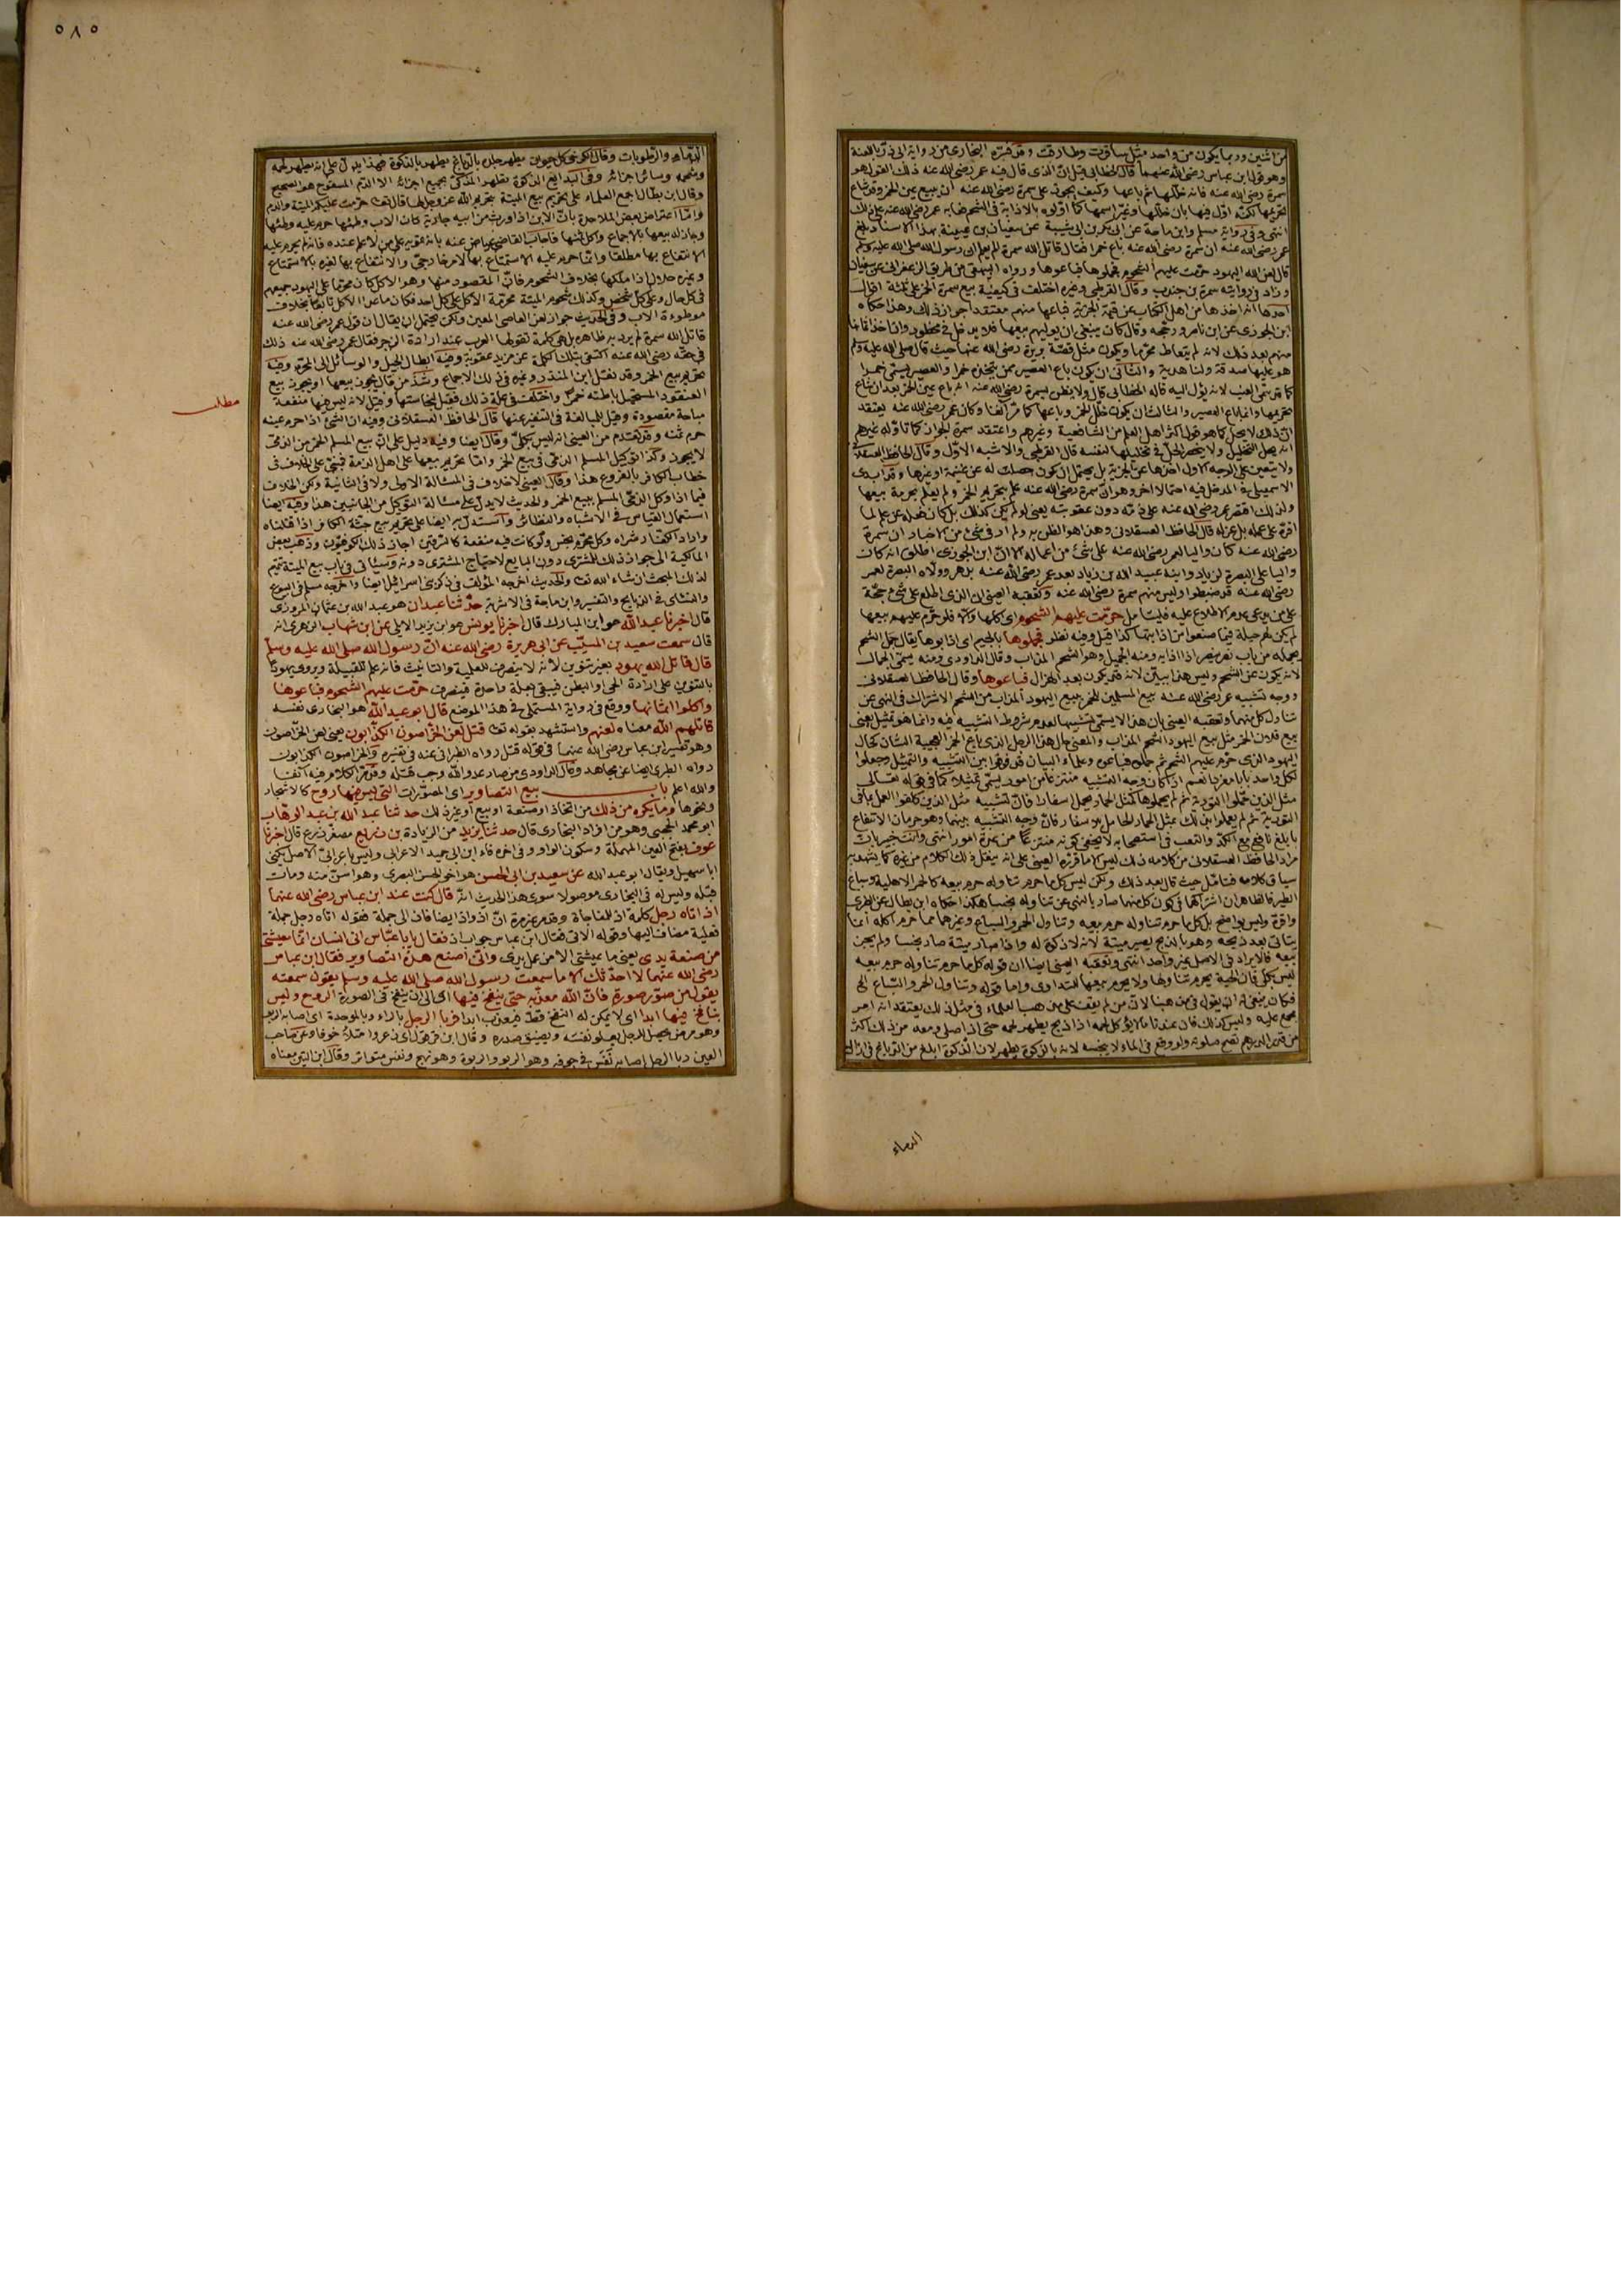 من اثنين وربما يكون من واحد مثل سافرت وطارقت وقد فسره البخاري من رواية ابي ذر باللعنة
وهو قول ابن عباس رضي الله عنهما قال الخطابي قيل ان الذي قال فيه عمر رضي الله عنه ذلك القول هو
سمرة رضي الله عنه فانه خللها ثم باعها وكيف يجوز على سمرة رضي الله عنه ان يبيع عين الخمر وقد شاع
تحريمها لكنه اول فيها بان خللها وغير اسمها كما اولوه بالاذابة في الشحم فعابه عمر رضي الله عنه على ذلك
انتهى وفي رواية مسلم وابن ماجة عن ابي بكر بن ابي شيبة عن سفيان بن عيينة بهذا الاسناد بلغ
عمر رضي الله عنه ان سمرة رضي الله عنه باع خمرا فقال قاتل الله سمرة الم يعلم ان رسول الله صلى الله عليه وسلم
قال لعن الله اليهود حرمت عليهم الشحوم فجملوها فباعوها ورواه البيهقي من طريق الزعفراني عن سفيان
وزاد في روايته سمرة بن جندب وقال القرطبي وغيره اختلف في كيفية بيع سمرة الخمر على ثلثة اقوال
احدها انه اخذها من اهل الكتاب عن قيمة الجزية فباعها منهم معتقدا جواز ذلك وهذا حكاه
ابن الجوزي عن ابن ناصر ورجحه وقال كان ينبغي ان يوليهم بيعها فلا يدخل في محظور وان اخذ اثمانها
منهم بعد ذلك لانه لم يتعاط محرما ويكون مثل قصة بريرة رضي الله عنها حيث قال صلى الله عليه وسلم
هو عليها صدقة ولنا هدية والثاني ان يكون باع العصير ممن يتخذه خمرا والعصير يسمى خمرا
كما قد سمي العنب لانه يؤل اليه قاله الخطابي قال ولا يظن بسمرة رضي الله عنه انه باع عين الخمر بعد ان شاع
تحريمها وانما باع العصير والثالث ان يكون خلل الخمر وباعها كما مر آنفا وكان عمر رضي الله عنه يعتقد
ان ذلك لا يحل كما هو قول اكثر اهل العلم من الشافعية وغيرهم واعتقد سمرة الجواز كما تاوله غيرهم
انه يحل التخليل ولا ينحصر الحل في تخليلها بنفسه قال القرطبي والاشبه الاول وقال الحافظ العسقلاني
ولا يتعين على الوجه الاول اخذها عن الجزية بل يحتمل ان يكون حصلت له عن غنيمة او غيرها وقد ابدى
الاسمعيلي في المدخل فيه احتمالا اخر وهو ان سمرة رضي الله عنه علم بتحريم الخمر ولم يعلم بحرمة بيعها
ولذلك اقتصر عمر رضي الله عنه على ذمه دون عقوبته يعني لو لم يكن كذلك
اقره على عمله بل عزله قال الحافظ العسقلاني وهذا هو الظن به ولم ار في شئ من الاخبار ان سمرة
رضي الله عنه كان واليا لعمر رضي الله عنه على شئ من اعماله الا ان ابن الجوزي اطلق انه كان
واليا على البصرة لزياد وابنه عبيد الله بن زياد بعد عمر رضي الله عنه بدهر وولاة البصرة لعمر
رضي الله عنه قد ضبطوا وليس منهم سمرة رضي الله عنه وتعقبه العيني
حرمت عليهم الشحوم اي اكلها والا فلو حرم عليهم بيعها
لم يكن لهم حيلة فيما صنعوا من اذابتها كذا قيل وفيه نظر فجملوها بالجيم اي اذابوها يقال جمل الشحم
يجمله من باب نصر ينصر اذا اذابه ومنه الجميل وهو الشحم المذاب وقال الداودي ومنه سمي الجمال
لانه يكون عن الشحم وليس هذا ببين لانه قد يكون بعد الهزال فباعوها وقال الحافظ العسقلاني
ووجه تشبيه عمر رضي الله عنه بيع المسلمين للخمر ببيع اليهود المذاب من الشحم الاشتراك في النهي عن
تناول كل منهما وتعقبه العيني بان هذا لا يسمى تشبيها لعدم شروط التشبيه فيه وانما هو تمثيل يعني
بيع فلان الخمر مثل بيع اليهود الشحم المذاب والمعنى حال هذا الرجل الذي باع الخمر العجيبة الشان كحال
اليهود الذي حرم عليهم الشحم ثم جملوه فباعوه وعلماء البيان قد فرقوا بين التشبيه والتمثيل وجعلوا
لكل واحد بابا مفردا نعم اذا كان وجه التشبيه منتزعا من امور يسمى تمثيلا كما في قوله تعالى
مثل الذين حملوا التورية ثم لم يحملوها كمثل الحمار يحمل اسفارا فان تشبيه مثل الذين كلفوا العمل بما في
التورية ثم لم يعملوا بذلك بمثل الحمار الحامل للاسفار فان وجه التشبيه بينهما وهو حرمان الانتفاع
بابلغ نافع مع الكد والتعب في استصحابه لا يخفى كونه منتزعا من عدة امور انتهى وانت خبير بان
مراد الحافظ العسقلاني من كلامه ذلك ليس كما قرره العيني
سياق كلامه فتامل حيث قال بعد ذلك ولكن ليس كل ما حرم تناوله حرم بيعه كالحمر الاهلية وسباع
الطير فالظاهر ان اشتراكهما في كون كل منهما صار بالنهي عن تناوله نجسا هكذا حكاه ابن بطال عن الطبري
واقره وليس بواضح بل كل ما حرم تناوله حرم بيعه وتناول الحمر والسباع وغيرهما مما حرم اكله انما
يتاتى بعد ذبحه وهو بالذبح يصير ميتة لانه لا ذكوة له واذا صار ميتة صار نجسا ولم يجز
بيعه فالايراد في الاصل غير وارد انتهى وتعقبه العيني ايضا ان قوله كل ما حرم تناوله حرم بيعه
ليس بكلي فان الحية يحرم تناولها ولا يحرم بيعها للتداوي واما قوله وتناول الحمر والسباع الخ
مجمع عليه وليس كذلك فان عندنا ما لا يؤكل لحمه اذا ذبح يطهر لحمه حتى اذا صلى ومعه من ذلك اكثر
من قدر الدرهم تصح صلوته ولو وقع في الماء لا ينجسه لانه بالذكوة يطهر لان الذكوة ابلغ من الدباغ في ازالة
الدماء
٥٨٥
الدماء والرطوبات وقال الكرخي كل حيوان يطهر جلده بالدباغ يطهر بالذكوة فهذا يدل على انه يطهر لحمه
وشحمه وسائر اجزائه وفي البدائع الذكوة تطهر المذكى بجميع اجزائه الا الدم المسفوح هو الصحيح
وقال ابن بطال اجمع العلماء على تحريم بيع الميتة بتحريم الله عز وجل لها قال تعالى حرمت عليكم الميتة والدم
واما اعتراض بعض الملاحدة بان الابن اذا ورث من ابيه جارية كان الاب وطئها حرم عليه وطئها
وجاز له بيعها بالاجماع واكل ثمنها فاجاب القاضي عياض عنه بانه تمويه على من لا علم عنده فانه لم يحرم عليه
الانتفاع بها مطلقا وانما حرم عليه الاستمتاع بها لامر خارجي والانتفاع بها لغيره بالاستمتاع
وغيره حلال اذا ملكها بخلاف الشحوم فان المقصود منها وهو الاكل كان محرما على اليهود جميعهم
في كل حال وعلى كل شخص وكذلك شحوم الميتة محرمة الاكل على كل احد فكان ما عدا الاكل تابعا بخلاف
موطوءة الاب وفي الحديث جواز لعن العاصي المعين ولكن يحتمل ان يقال ان قول عمر رضي الله عنه
قاتل الله سمرة لم يرد به ظاهره بل هي كلمة تقولها العرب عند ارادة الزجر فقال عمر رضي الله عنه ذلك
في حقه رضي الله عنه اكتفى بتلك الكلمة عن مزيد عقوبة وفيه ابطال الحيل والوسائل الى المحرم وفيه
تحريم بيع الخمر وقد نقل ابن المنذر وغيره في ذلك الاجماع وشذ من قال يجوز بيعها او يجوز بيع
مطلب
العنقود المستحيل باطنه خمرا واختلف في علة ذلك فقيل لنجاستها وقيل لانه ليس فيها منفعة
مباحة مقصودة وقيل للمبالغة في التنفير عنها قال الحافظ العسقلاني وفيه ان الشئ اذا حرم عينه
حرم ثمنه وقد تقدم من العيني انه ليس بكلي وقال ايضا وفيه دليل على ان بيع المسلم الخمر من الذمي
لا يجوز وكذا توكيل المسلم الذمي في بيع الخمر واما تحريم بيعها على اهل الذمة فمبني على الخلاف في
خطاب الكافر بالفروع هذا وقال العيني لا خلاف في المسئالة الاولى ولا في الثانية ولكن الخلاف
فيما اذا وكل الذمي المسلم ببيع الخمر والحديث لا يدل على مسئالة التوكيل من الجانبين هذا وفيه ايضا
استعمال القياس في الاشباه والنظائر واستدل به ايضا على تحريم بيع جثة الكافر اذا قتلناه
واراد الكفار شراه وكل محرم نجس ولو كانت فيه منفعة كالسرقين اجاز ذلك الكوفيون وذهب بعض
المالكية الى جواز ذلك للمشتري دون البايع لاحتياج المشتري دونه وسيأتي في باب بيع الميتة تتميم
لذلك المبحث ان شاء الله تعالى والحديث اخرجه المؤلف في ذكر بني اسرائيل ايضا واخرجه مسلم في البيوع
والنسائي في الذبايح والتفسير وابن ماجة في الاشربة حدثنا عبدان هو عبد الله بن عثمان المروزي
قال اخبرنا عبد الله هو ابن المبارك قال اخبرنا يونس هو ابن يزيد الايلي عن ابن شهاب الزهري انه
قال سمعت سعيد بن المسيب عن ابي هريرة رضي الله عنه ان رسول الله صلى الله عليه وسلم
قال قاتل الله يهود بغير تنوين لانه لا ينصرف للعلمية والتانيث فانه علم للقبيلة ويروى يهودا
بالتنوين على ارادة الحي والبطن فيبقى بعلة واحدة فينصرف حرمت عليهم الشحوم فباعوها
واكلوا اثمانها ووقع في رواية المستملي في هذا الموضع قال ابو عبد الله هو البخاري نفسه
قاتلهم الله معناه لعنهم واستشهد بقوله تعالى قتل لعن الخراصون الكذابون يعني لعن الخراصون
وهو تفسير ابن عباس رضي الله عنهما في قوله قتل رواه الطبراني عنه في تفسيره والخراصون الكذابون
رواه الطبري ايضا عن مجاهد وقال الداودي من صار عدو الله وجب قتله وقد مر الكلام فيه آنفا
والله اعلم باب بيع التصاوير اي المصورات التي ليس فيها روح كالاشجار
ونحوها وما يكره من ذلك من اتخاذ او صنعة او بيع او غير ذلك حدثنا عبد الله بن عبد الوهاب
ابو محمد الحجبي وهو من افراد البخاري قال حدثنا يزيد من الزيادة بن زريع مصغر زرع قال اخبرنا
عوف بفتح العين المهملة وسكون الواو وفي اخره فاء ابن ابي حميد الاعرابي وليس باعرابي الاصل يكنى
ابا سهيل ويقال ابو عبد الله عن سعيد بن ابي الحسن هو اخو الحسن البصري وهو اسن منه ومات
قبله وليس له في البخاري موصولا سوى هذا الحديث انه قال كنت عند ابن عباس رضي الله عنهما
اذ اتاه رجل كلمة اذ للمفاجاة وقد مر غير مرة ان اذ واذا يضافان الى جملة فقوله اتاه رجل جملة
فعلية مضاف اليها وقوله الاتي فقال ابن عباس جواب اذ فقال يا ابا عباس اني انسان انما معيشتي
من صنعة يدي يعني ما معيشتي الا من عمل يدي واني اصنع هذه التصاوير فقال ابن عباس
رضي الله عنهما لا احدثك الا ما سمعت رسول الله صلى الله عليه وسلم يقول سمعته
يقول من صور صورة فان الله معذبه حتى ينفخ فيها اي الى ان ينفخ في الصورة الروح وليس
بنافخ فيها ابدا اي لا يمكن له النفخ قط فيعذب ابدا فربا الرجل بالراء وبالموحدة اي اصابه الربو
وهو مرض يحصل للرجل يعلو نفسه ويضيق صدره وقال ابن قرقول اي ذعر وامتلأ خوفا وعن صاحب
العين ربا الرجل اصابه نفس في جوفه وهو الربو والربوة وهو نهج ونفس متواتر وقال ابن التين معناه